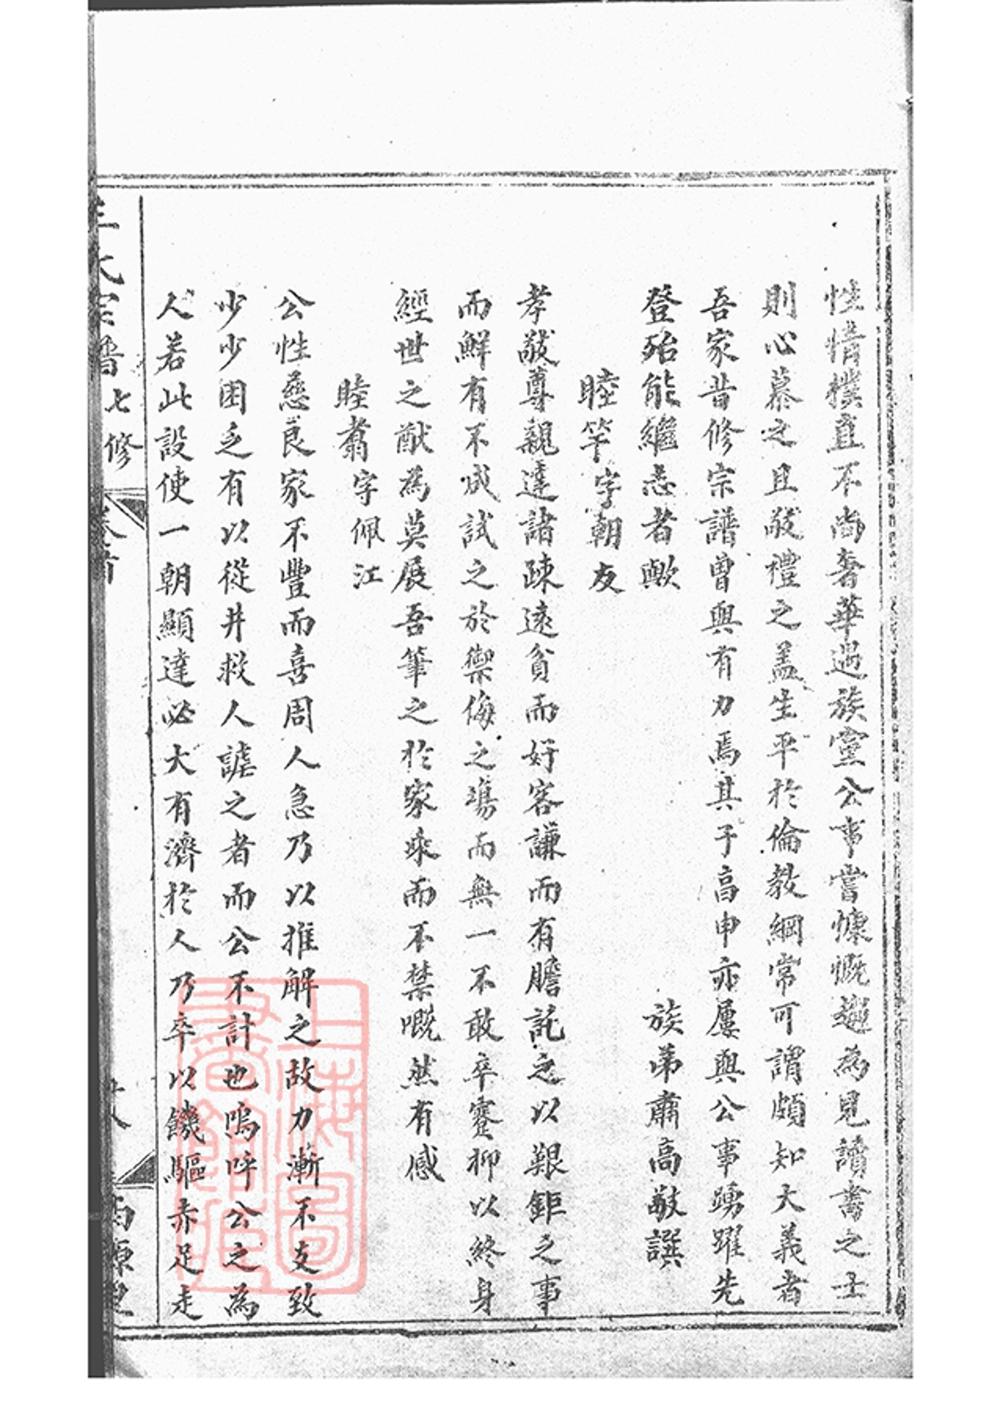 性情樸直不尚奢華遇族黨公事嘗慷慨趨為見讀書之士
則心慕之且敬禮之蓋生平於倫教綱常可謂頗知大義者
吾家昔修宗譜曾與有力焉其子高申亦屢與公事踴躍先
登殆能繼志者歟
族弟肅高敬譔
睦竿字朝友
孝敬尊親達諸踈遠貧而好客謙而有膽託之以艱鉅之事
而鮮有不成試之於禦侮之場而無一不敢卒蹇抑以終身
經世之猷為莫展吾筆之於家乘而不禁嘅然有感
睦肅字佩江
公性慈良家不豐而喜周人急乃以推解之故力漸不支致
少少困乏有以從井救人謔之者而公不計也嗚呼公之為
人若此設使一朝顯達必大有濟於人乃卒以饑驅赤足走
王氏宗譜七修
卷首
上海圖書館藏